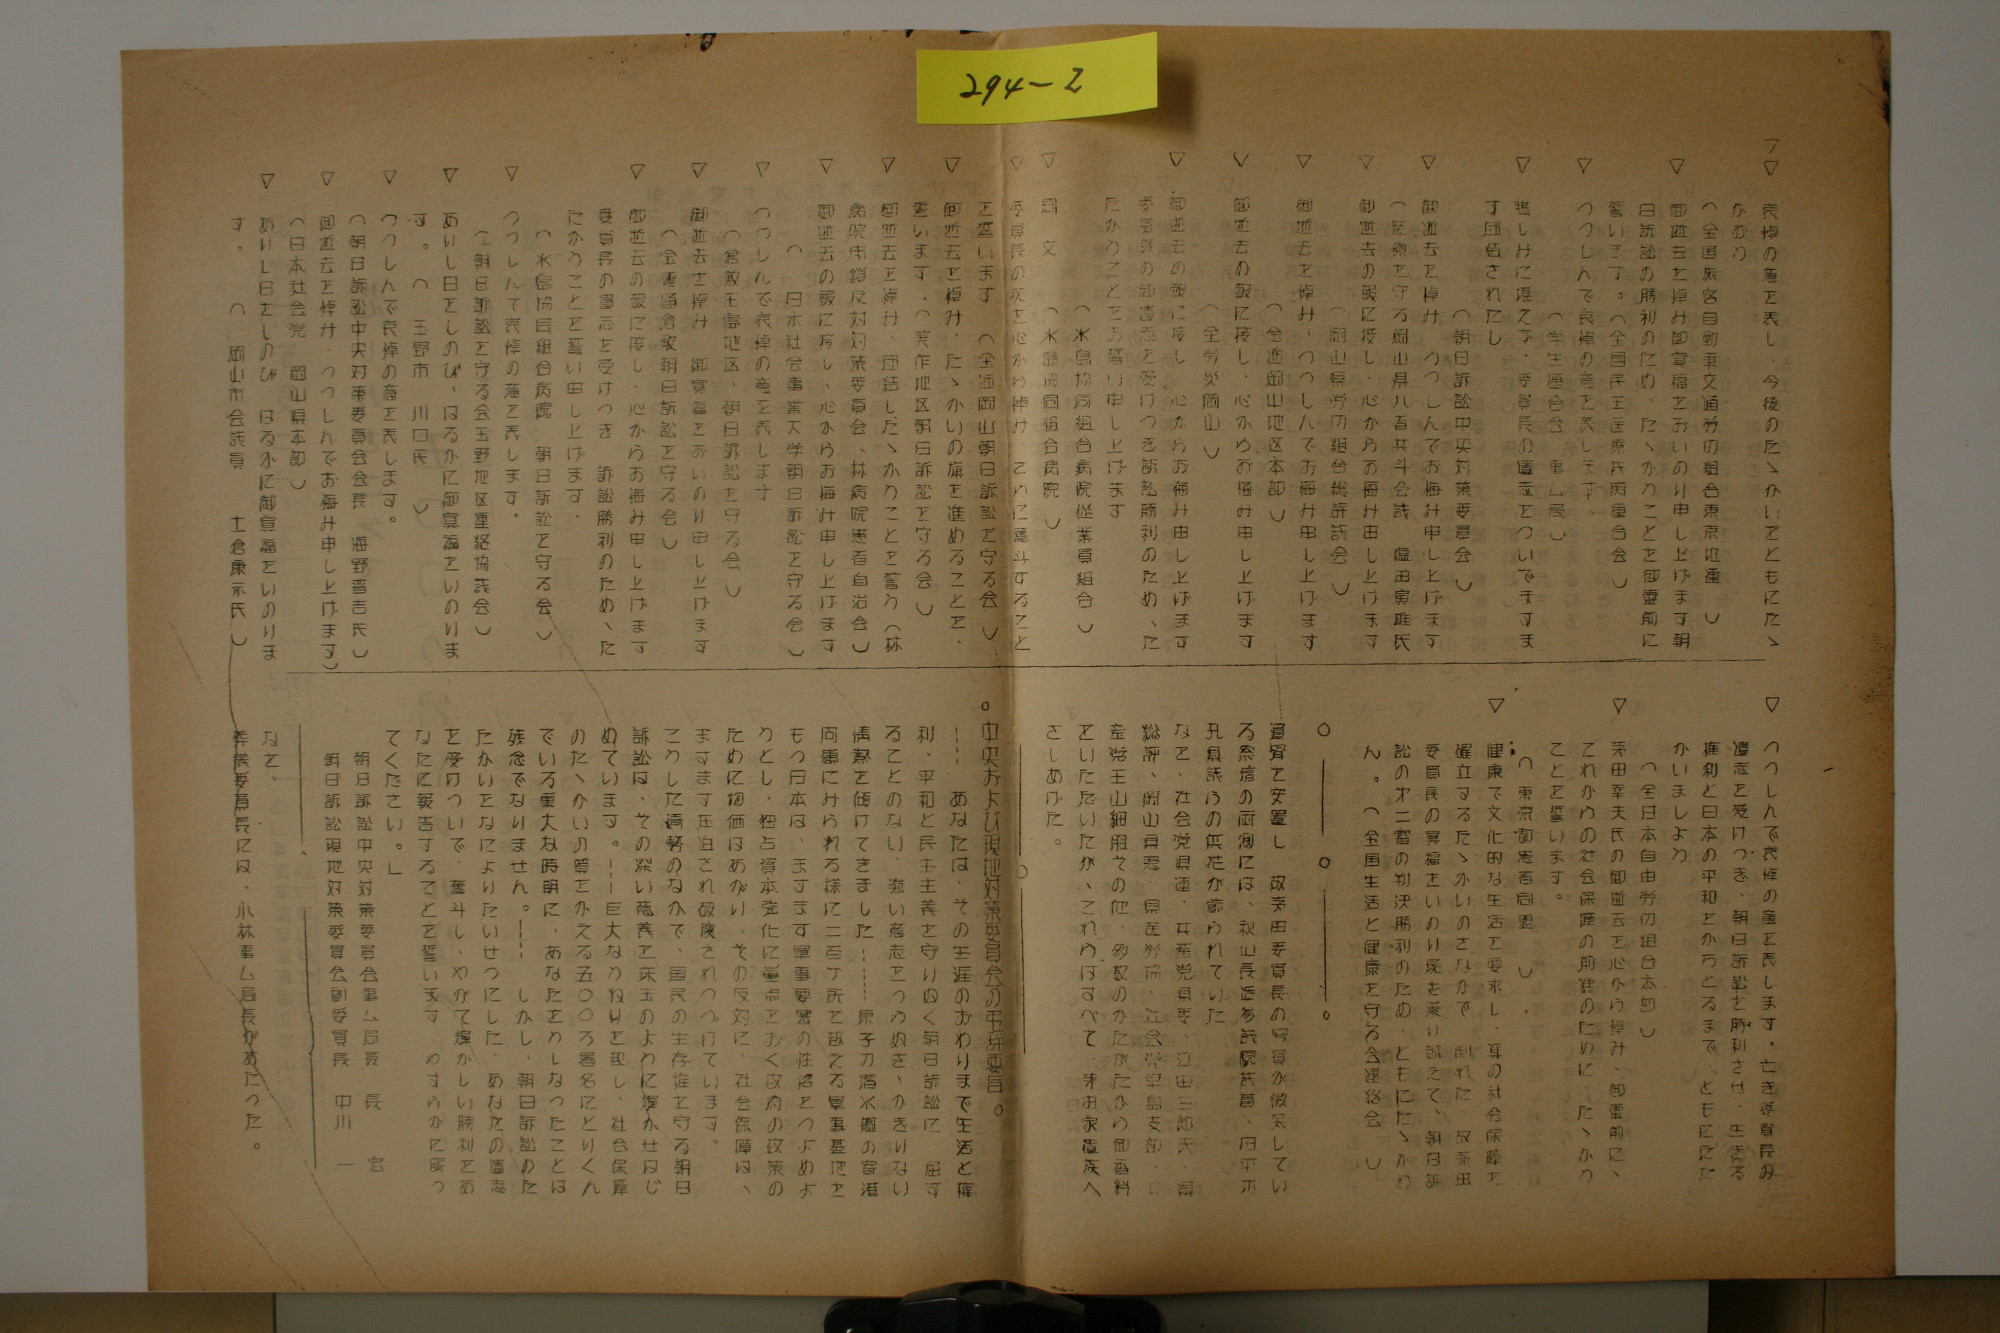 294-2
▽哀悼の意を表し、今後のたゝかいをともにたゝ
かおう
(全国旅客自動車交通労仂組合東京地連)
▽御逝去を悼み御冥福をおいのり申し上げます朝
日訴訟の勝利のため、たゝかうことを御霊前に
誓います。(全国民主医療氏病連合会)
▽つつしんで哀悼の意を表します。
(学生連合会 事ム局)
▽悲しみに堪えず、委員長の遺志をついでますま
す団結されたし
(朝日訴訟中央対策委員会)
▽御逝去を悼み つつしんでお悔み申し上げます
(医療を守る岡山県八者共斗会議 盛田実雄氏
▽御逝去の報に接し、心からお悔み申し上げます
(岡山県労仂組合総評議会)
▽御逝去を悼み、つつしんでお悔み申し上げます
(全逓岡山地区本部)
▽御逝去の報に接し、心からお悔み申し上げます
(全労災岡山)
▽御逝去の報に接し、心からお悔み申し上げます
委員長の御遺志を受けつぎ訴訟勝利のため、た
たかうことをお誓い申し上げます
(水島協同組合病院従業員組合)
▽同 文 (水島協同組合病院)
▽委員長の死を心から悼み さらに奮斗すること
を誓います (全逓岡山朝日訴訟を守る会)
▽御逝去を悼み、たゝかいの旗を進めることを、
誓います。(美作地区朝日訴訟を守る会)
▽御逝去を悼み、団結したゝかうことを誓う(林
病院閉鎖反対対策委員会、林病院患者自治会)
▽御逝去の報に接し、心からお悔み申し上げます
( 日本社会事業大学朝日訴訟を守る会)
▽つつしんで哀悼の意を表します
(倉敷玉島地区、朝日訴訟を守る会)
▽御逝去を悼み 御冥福をおいのり申し上げます
(全電通倉敷朝日訴訟を守る会)
▽御逝去の報に接し、心からお悔み申し上げます
委員長の遺志を受けつぎ 訴訟勝利のため、た
たかうことを誓い申し上げます.
(水島協同組合病院 朝日訴訟を守る会)
▽つつしんで哀悼の意を表します。
(朝日訴訟を守る会玉野地区連絡協議会)
▽ありし日をしのび、はるかに御冥福をいのりま
す。 ( 玉野市 川口氏 )
▽つつしんで哀悼の意を表します。
(朝日訴訟中央対策委員会会長 海野晋吉氏)
▽御逝去を悼み、つつしんでお悔み申し上げます)
(日本社会党 岡山県本部)
▽ありし日をしのび、はるかに御冥福をいのりま
す。 ( 岡山市会議員 土倉康示氏)
▽つつしんで哀悼の意を表します。亡き委員長の
遺志を受けつぎ、朝日訴訟を勝利させ、生きる
権利と日本の平和をかちとるまで、ともにたた
かいましよう
(全日本自由労仂組合本部)
▽茅田幸夫氏の御逝去を心から悼み、御霊前に、
これからの社会保障の前進のために、たゝかう
ことを誓います。
( 東京都患者同盟 )
▽健康で文化的な生活を要求し、真の社会保障を
確立するたゝかいのさなかで 倒れた 故茅田
委員長の冥福をいのり屍を乗り越えて、朝日訴
訟の第二審の判決勝利のため、ともにたゝかう
ん。 (全国生活と健康を守る会連絡会 )
遺骨を安置し 故茅田委員長の写真が微笑してい
る祭壇の両側には、秋山長造参議院議員、
県議らの供花が飾られていた
なを、社会党県連、共産党県委、江田三郎氏、県
総評、岡山県委、県医労協、社会党
産党玉山細胞その他、多数のかたがたから御香料
をいただいたが、これらはすべて、茅田家遺族へ
さしあげた。
。中央および現地対策委員会の弔辞要旨。
---- あなたは、その生涯のおわりまで生活と権
利、平和と民主主義を守りぬく朝日訴訟に 屈す
ることのない、強い意志をつらぬき、かぎりない
情熱を傾けてきました ---- 原子力潜水艦の寄港
同意にみられる様に二百ケ所を越える軍事基地を
もつ日本は、ますます軍事要塞の性格をつよめよ
うとし、独占資本強化に重点をおく政府の政策の
ために物価はあがり、その反対に、社会保障は、
ますます圧迫され破壊されつづけています。
こうした情勢のなかで、国民の生存権を守る朝日
訴訟は、その深い意義を宝玉のように輝かせはじ
めています。---巨大なうねりを起し、社会保障
のたゝかいの質をかえる五〇〇万署名にとりくん
でいる重大な時期に、あなたをうしなつたことは
残念でなりません。---- しかし、朝日訴訟のた
たかいをなによりたいせつにした、あなたの遺志
を受けついで、奮斗し、やがて輝かしい勝利をあ
なたに報告することを誓います やすらかに眠つ
てください。」
朝日訴訟中央対策委員会事ム局長 長 宏
朝日訴訟現地対策委員会副委員長 中川 一
なを、
葬儀委員長には、小林事ム局長があたつた。